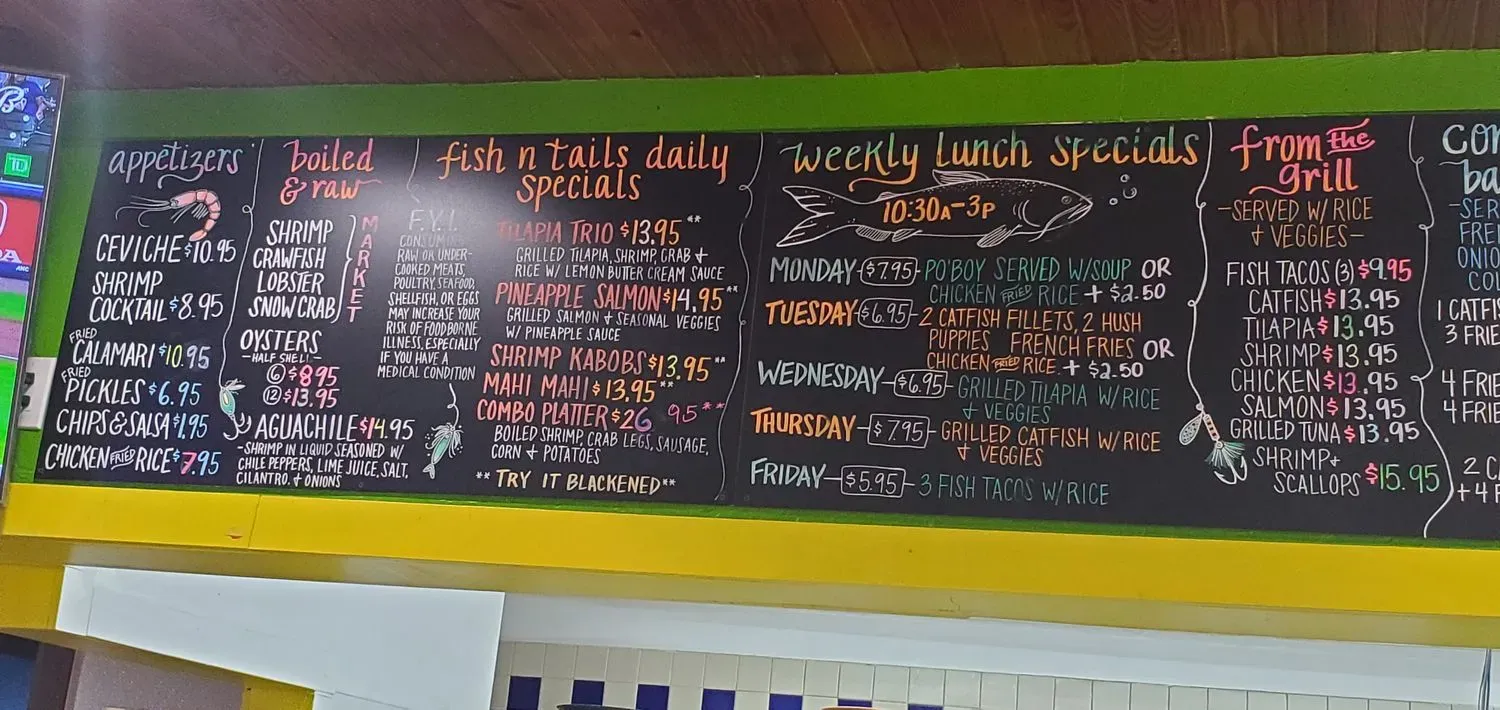 appetizers
CEVICHE $10.95
SHRIMP
COCKTAIL $8.95
FRIED
CALAMARI $10.95
FRIED
PICKLES $6.95
CHIPS & SALSA $1.95
CHICKEN FRIED RICE $7.95
boiled
& raw
SHRIMP
CRAWFISH
LOBSTER
SNOW CRAB
MARKET
OYSTERS
-HALF SHELL-
6 $8.95
12 $13.95
AGUACHILE $14.95
-SHRIMP IN LIQUID SEASONED W/
CHILE PEPPERS, LIME JUICE, SALT,
CILANTRO, + ONIONS
F.Y.I.
CONSUMING
RAW OR UNDER-
COOKED MEATS,
POULTRY, SEAFOOD,
SHELLFISH, OR EGGS
MAY INCREASE YOUR
RISK OF FOODBORNE
ILLNESS, ESPECIALLY
IF YOU HAVE A
MEDICAL CONDITION
fish n tails daily
specials
TILAPIA TRIO $13.95**
GRILLED TILAPIA, SHRIMP, CRAB +
RICE W/ LEMON BUTTER CREAM SAUCE
PINEAPPLE SALMON $14.95**
GRILLED SALMON + SEASONAL VEGGIES
W/ PINEAPPLE SAUCE
SHRIMP KABOBS $13.95**
MAHI MAHI $13.95**
COMBO PLATTER $26 95**
BOILED SHRIMP, CRAB LEGS, SAUSAGE,
CORN + POTATOES
** TRY IT BLACKENED**
weekly lunch specials
10:30A-3P
MONDAY-$7.95-PO'BOY SERVED W/SOUP OR
CHICKEN FRIED RICE + $2.50
TUESDAY-$6.95-2 CATFISH FILLETS, 2 HUSH
PUPPIES FRENCH FRIES OR
CHICKEN FRIED RICE + $2.50
WEDNESDAY-$6.95-GRILLED TILAPIA W/RICE
+ VEGGIES
THURSDAY-$7.95-GRILLED CATFISH W/RICE
+ VEGGIES
FRIDAY-$5.95-3 FISH TACOS W/RICE
from the
grill
-SERVED W/ RICE
+ VEGGIES-
FISH TACOS (3) $9.95
CATFISH $13.95
TILAPIA $13.95
SHRIMP $13.95
CHICKEN $13.95
SALMON $13.95
GRILLED TUNA $13.95
SHRIMP +
SCALLOPS $15.95
TD
1 CATFIS
3 FRIE
4 FRIE
4 FRIE
2 C
+ 4 F